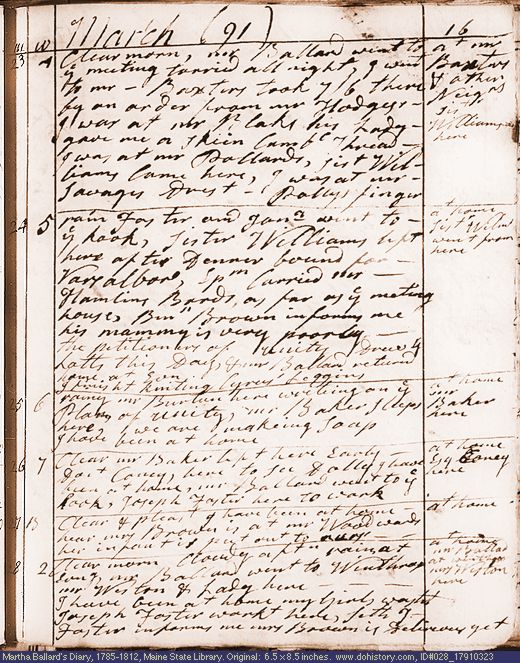 March (91) 16
23 4 Clear morn, mr Ballard went to
ye meeting tarried all night, I went
to mr Baxters took 7/6 there
by an order from mr Hodges
I was at mr Plaks his Lady
gave me a skein Camb thread
I was at mr Pollards, sist Wil
liams Came here, I was at mr
Savages Drest Pollys finger
at mr
Baxters
& other
Neigbs
Sister
Williams
here
24 5 rain Foster and Jona went to
ye hook, Sister Williams left
here after Denner bound for
Vassalboro, Ipm Carried mr
Hamlins Bords, as far as ye meting
house, Bin Brown informs me
his mammy is very poorly
the petitioners of Unity Drew ye
lotts this Day, & mr Ballard return
home at Even
I knight knitting Cyrus leggins
at home
Sist Willms
went from
here
25 6 rainy mr Burton here writing on ye
Plans of Unity, mr Baker Sleeps
here, & we are makeing Soap
I have been at home
at home
mr
Baker
here
26 7 Clear mr Baker left here Early
Doct Coney here to see Polly I have
been at home, mr Ballard went to ye
hook, Joseph Foster here to work
at home
Esq Coney
here
27 Clear & pleast I have been at home
hear mrs Brown is at mr Woodwards
her infant is put out to nurs
at home
28 2 Clear morn Cloudy aftn rain at
Evng, mr Ballard went to Winthrop
mr Weston & Lady here
I have been at home my Girls washt
Joseph Foster workt here, Seth
Foster informs me mrs Brown is Delivery yet
at home
mr Ballad
at
mrs Weston
here
Martha Ballard's Diary, 1785-1812, Maine State Library. Original: 6.5 x 8.5 inches. www.dohistory.com, ID#028_17910323